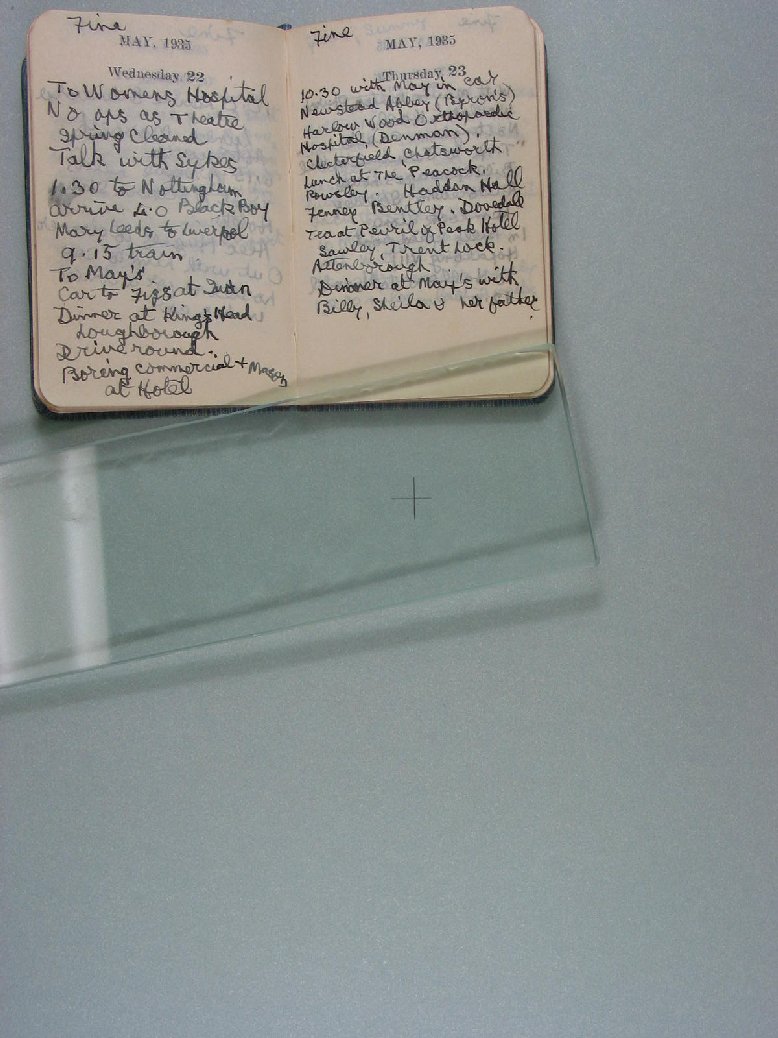 Fine
MAY, 1935
Wednesday 22
To Womens Hospital
No ops as Theatre
Spring Cleaned
Talk with Sykes
1.30 to Nottingham
arrive 4.0 Black Boy
Mary Leeds to Liverpol
9.15 train
To May's
Car to Figs at Quon
Dinner at King's Head
Loughborough
Drive round.
Boring commercial + Mason
at Hotel
Fine
MAY, 1935
Thursday 23
10.30 with May in car
Newstead Abbey (Byron's)
Harlow Wood Orthopaedic
Hospital (Denman).
Chesterfield, Chatsworth
Lunch at The Peacock.
Rowsley. Haddon Hall
Fenney Bentley. Dovedale
Tea at Pevril & Peak Hotel
Sawley, Trent Lock.
Attenborough.
Dinner at May's with
Billy, Sheila & her father